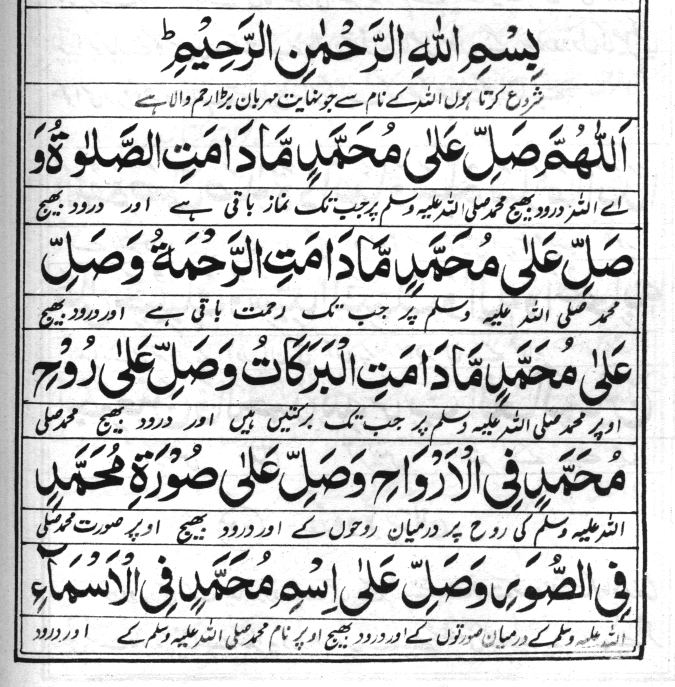 بِسْمِ اللهِ الرَّحْمٰنِ الرَّحِيْمِ ط
شروع کرتا ہوں اللہ کے نام سے جو نہایت مہربان بڑا رحم والا ہے
اَللّٰهُمَّ صَلِّ عَلٰى مُحَمَّدٍ مَّا دَامَتِ الصَّلٰوةُ وَ
اے اللہ درود بھیج محمد صلی اللہ علیہ وسلم پر جب تک نماز باقی ہے اور درود بھیج
صَلِّ عَلٰى مُحَمَّدٍ مَّا دَامَتِ الرَّحْمَةُ وَصَلِّ
محمد صلی اللہ علیہ وسلم پر جب تک رحمت باقی ہے اور درود بھیج
عَلٰى مُحَمَّدٍ مَّا دَامَتِ الْبَرَكَاتُ وَصَلِّ عَلٰى رُوْحِ
اوپر محمد صلی اللہ علیہ وسلم پر جب تک برکتیں ہیں اور درود بھیج محمد صلی
مُحَمَّدٍ فِى الْاَرْوَاحِ وَصَلِّ عَلٰى صُوْرَةِ مُحَمَّدٍ
اللہ علیہ وسلم کی روح پر درمیان روحوں کے اور درود بھیج اوپر صورت محمد صلی
فِى الصُّوَرِ وَصَلِّ عَلٰى اِسْمِ مُحَمَّدٍ فِى الْاَسْمَآءِ
اللہ علیہ وسلم کے درمیان صورتوں کے اور درود بھیج اوپر نام محمد صلی اللہ علیہ وسلم کے اور درود